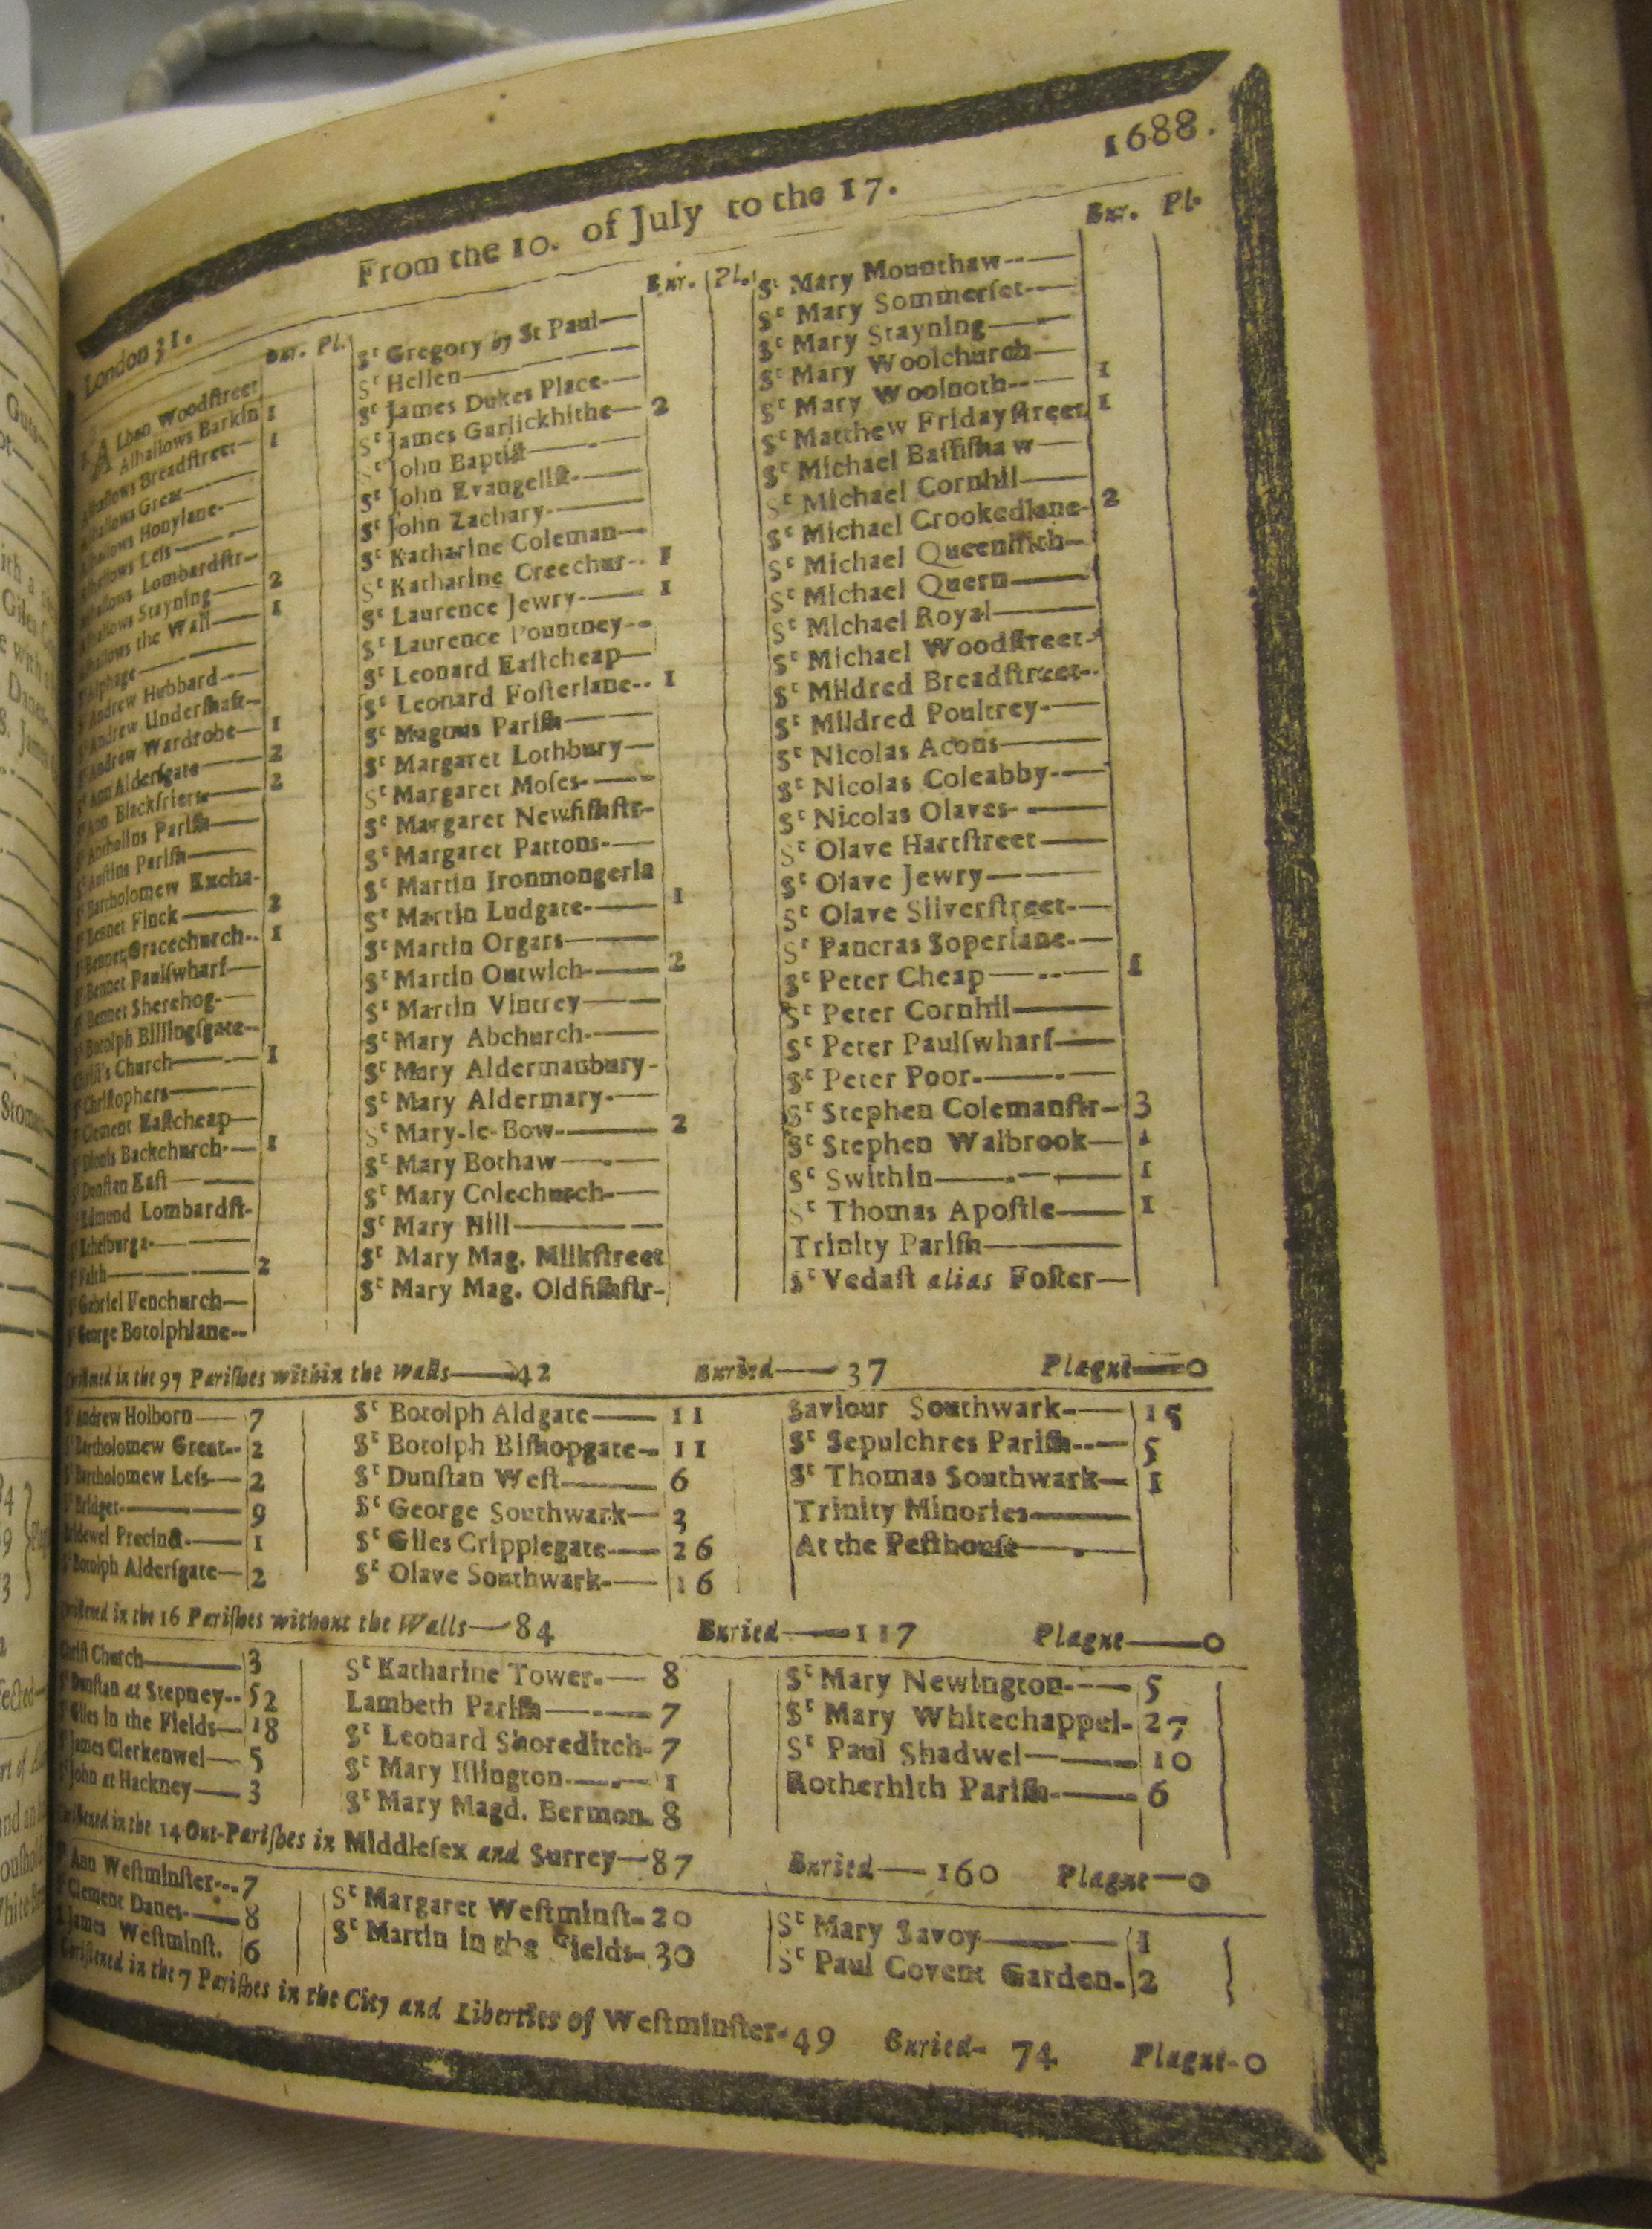 1688.
From the 10. of July to the 17.
London 31.
Bur. Pl.
Alban Woodſtreet
Alhallows Barkin 1
Alhallows Breadſtreet 1
Alhallows Great
Alhallows Honylane
Alhallows Leſs
Alhallows Lombardſtr
Alhallows Stayning 2
Alhallows the Wall 1
Sᵗ Alphage
Sᵗ Andrew Hubbard
Sᵗ Andrew Underſhaft
Sᵗ Andrew Wardrobe 1
Sᵗ Ann Alderſgate 2
Sᵗ Ann Blackfriers 2
Sᵗ Antholins Pariſh
Sᵗ Auſtins Pariſh
Sᵗ Bartholomew Excha-
Sᵗ Bennet Finck 2
Sᵗ Bennet Gracechurch 1
Sᵗ Bennet Paulſwharf
Sᵗ Bennet Sherehog
Sᵗ Botolph Billingſgate
Chriſt's Church 1
Sᵗ Chriſtophers
Sᵗ Clement Eaſtcheap
Sᵗ Dionis Backchurch 1
Sᵗ Dunſtan Eaſt
Sᵗ Edmund Lombardſt-
Sᵗ Ethelburga
Sᵗ Faith 2
Sᵗ Gabriel Fenchurch
Sᵗ George Botolphlane
Bur. Pl.
Sᵗ Gregory by St Paul
Sᵗ Hellen
Sᵗ James Dukes Place
Sᵗ James Garlickhithe 2
Sᵗ John Baptiſt
Sᵗ John Evangeliſt
Sᵗ John Zachary
Sᵗ Katharine Coleman
Sᵗ Katharine Creechur 1
Sᵗ Laurence Jewry 1
Sᵗ Laurence Pountney
Sᵗ Leonard Eaſtcheap
Sᵗ Leonard Foſterlane 1
Sᵗ Magnus Pariſh
Sᵗ Margaret Lothbury
Sᵗ Margaret Moſes
Sᵗ Margaret Newfiſhſtr-
Sᵗ Margaret Pattons
Sᵗ Martin Ironmongerla
Sᵗ Martin Ludgate 1
Sᵗ Martin Orgars
Sᵗ Martin Outwich 2
Sᵗ Martin Vintrey
Sᵗ Mary Abchurch
Sᵗ Mary Aldermanbury
Sᵗ Mary Aldermary
Sᵗ Mary-le-Bow 2
Sᵗ Mary Bothaw
Sᵗ Mary Colechurch
Sᵗ Mary Hill
Sᵗ Mary Mag. Milkſtreet
Sᵗ Mary Mag. Oldfiſhſtr-
Bur. Pl.
Sᵗ Mary Mounthaw
Sᵗ Mary Sommerſet
Sᵗ Mary Stayning
Sᵗ Mary Woolchurch
Sᵗ Mary Woolnoth 1
Sᵗ Matthew Fridayſtreet 1
Sᵗ Michael Baſſiſhaw
Sᵗ Michael Cornhil
Sᵗ Michael Crookedlane 2
Sᵗ Michael Queenhith
Sᵗ Michael Quern
Sᵗ Michael Royal
Sᵗ Michael Woodſtreet
Sᵗ Mildred Breadſtreet
Sᵗ Mildred Poultrey
Sᵗ Nicolas Acons
Sᵗ Nicolas Coleabby
Sᵗ Nicolas Olaves
Sᵗ Olave Hartſtreet
Sᵗ Olave Jewry
Sᵗ Olave Silverſtreet
Sᵗ Pancras Soperlane
Sᵗ Peter Cheap 1
Sᵗ Peter Cornhil
Sᵗ Peter Paulſwharf
Sᵗ Peter Poor
Sᵗ Stephen Colemanſtr 3
Sᵗ Stephen Walbrook 1
Sᵗ Swithin 1
Sᵗ Thomas Apoſtle 1
Trinity Pariſh
Sᵗ Vedaſt alias Foſter
Chriſtned in the 97 Pariſhes within the Walls 42 Buried 37 Plague 0
Sᵗ Andrew Holborn 7
Sᵗ Bartholomew Great 2
Sᵗ Bartholomew Leſs 2
Sᵗ Bridget 9
Bridewel Precinct 1
Sᵗ Botolph Alderſgate 2
Sᵗ Botolph Aldgate 11
Sᵗ Botolph Biſhopgate 11
Sᵗ Dunſtan Weſt 6
Sᵗ George Southwark 3
Sᵗ Giles Cripplegate 26
Sᵗ Olave Southwark 16
Saviour Southwark 15
Sᵗ Sepulchres Pariſh 5
Sᵗ Thomas Southwark 1
Trinity Minories
At the Peſthouſe
Chriſtned in the 16 Pariſhes without the Walls 84 Buried 117 Plague 0
Chriſt Church 3
Sᵗ Dunſtan at Stepney 52
Sᵗ Giles in the Fields 18
Sᵗ James Clerkenwel 5
Sᵗ John at Hackney 3
Sᵗ Katharine Tower 8
Lambeth Pariſh 7
Sᵗ Leonard Shoreditch 7
Sᵗ Mary Iſlington 1
Sᵗ Mary Magd. Bermon. 8
Sᵗ Mary Newington 5
Sᵗ Mary Whitechappel 27
Sᵗ Paul Shadwel 10
Rotherhith Pariſh 6
Chriſtned in the 14 Out-Pariſhes in Middleſex and Surrey 87 Buried 160 Plague 0
Sᵗ Ann Weſtminſter 7
Sᵗ Clement Danes 8
Sᵗ James Weſtminſt. 6
Sᵗ Margaret Weſtminſt- 20
Sᵗ Martin in the Fields 30
Sᵗ Mary Savoy 1
Sᵗ Paul Covent Garden 2
Chriſtned in the 7 Pariſhes in the City and Liberties of Weſtminſter 49 Buried 74 Plague 0